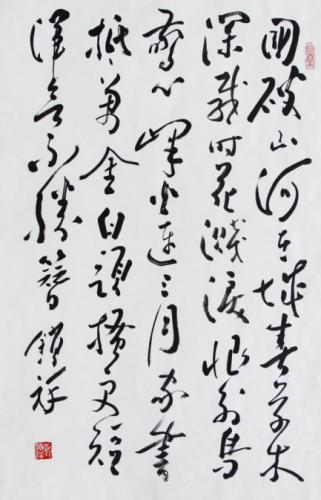 國破山河在城春草木
深感时花濺淚恨别鳥
驚心烽火連三月家書
抵萬金白頭搔更短
渾欲不勝簪